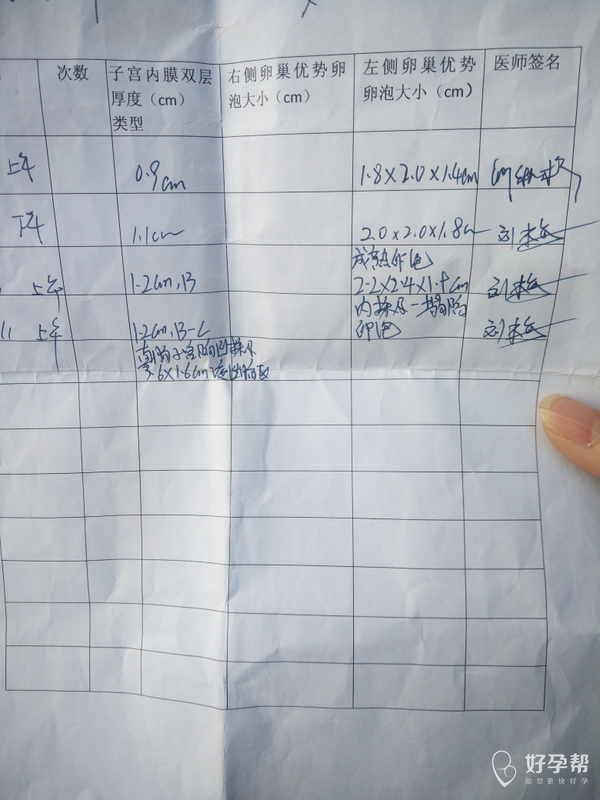 次数
子宫内膜双层
厚度（cm）
类型
右侧卵巢优势卵
泡大小（cm）
左侧卵巢优势
卵泡大小（cm）
医师签名
上午
0.9cm
1.8×2.0×1.4cm
下午
1.1cm
2.0×2.0×1.8cm
成熟卵泡
上午
1.2cm,B
2.2×2.4×1.4cm
11 上午
1.2cm,B-C
内探及一塌陷
卵泡
好孕帮
助您更快好孕